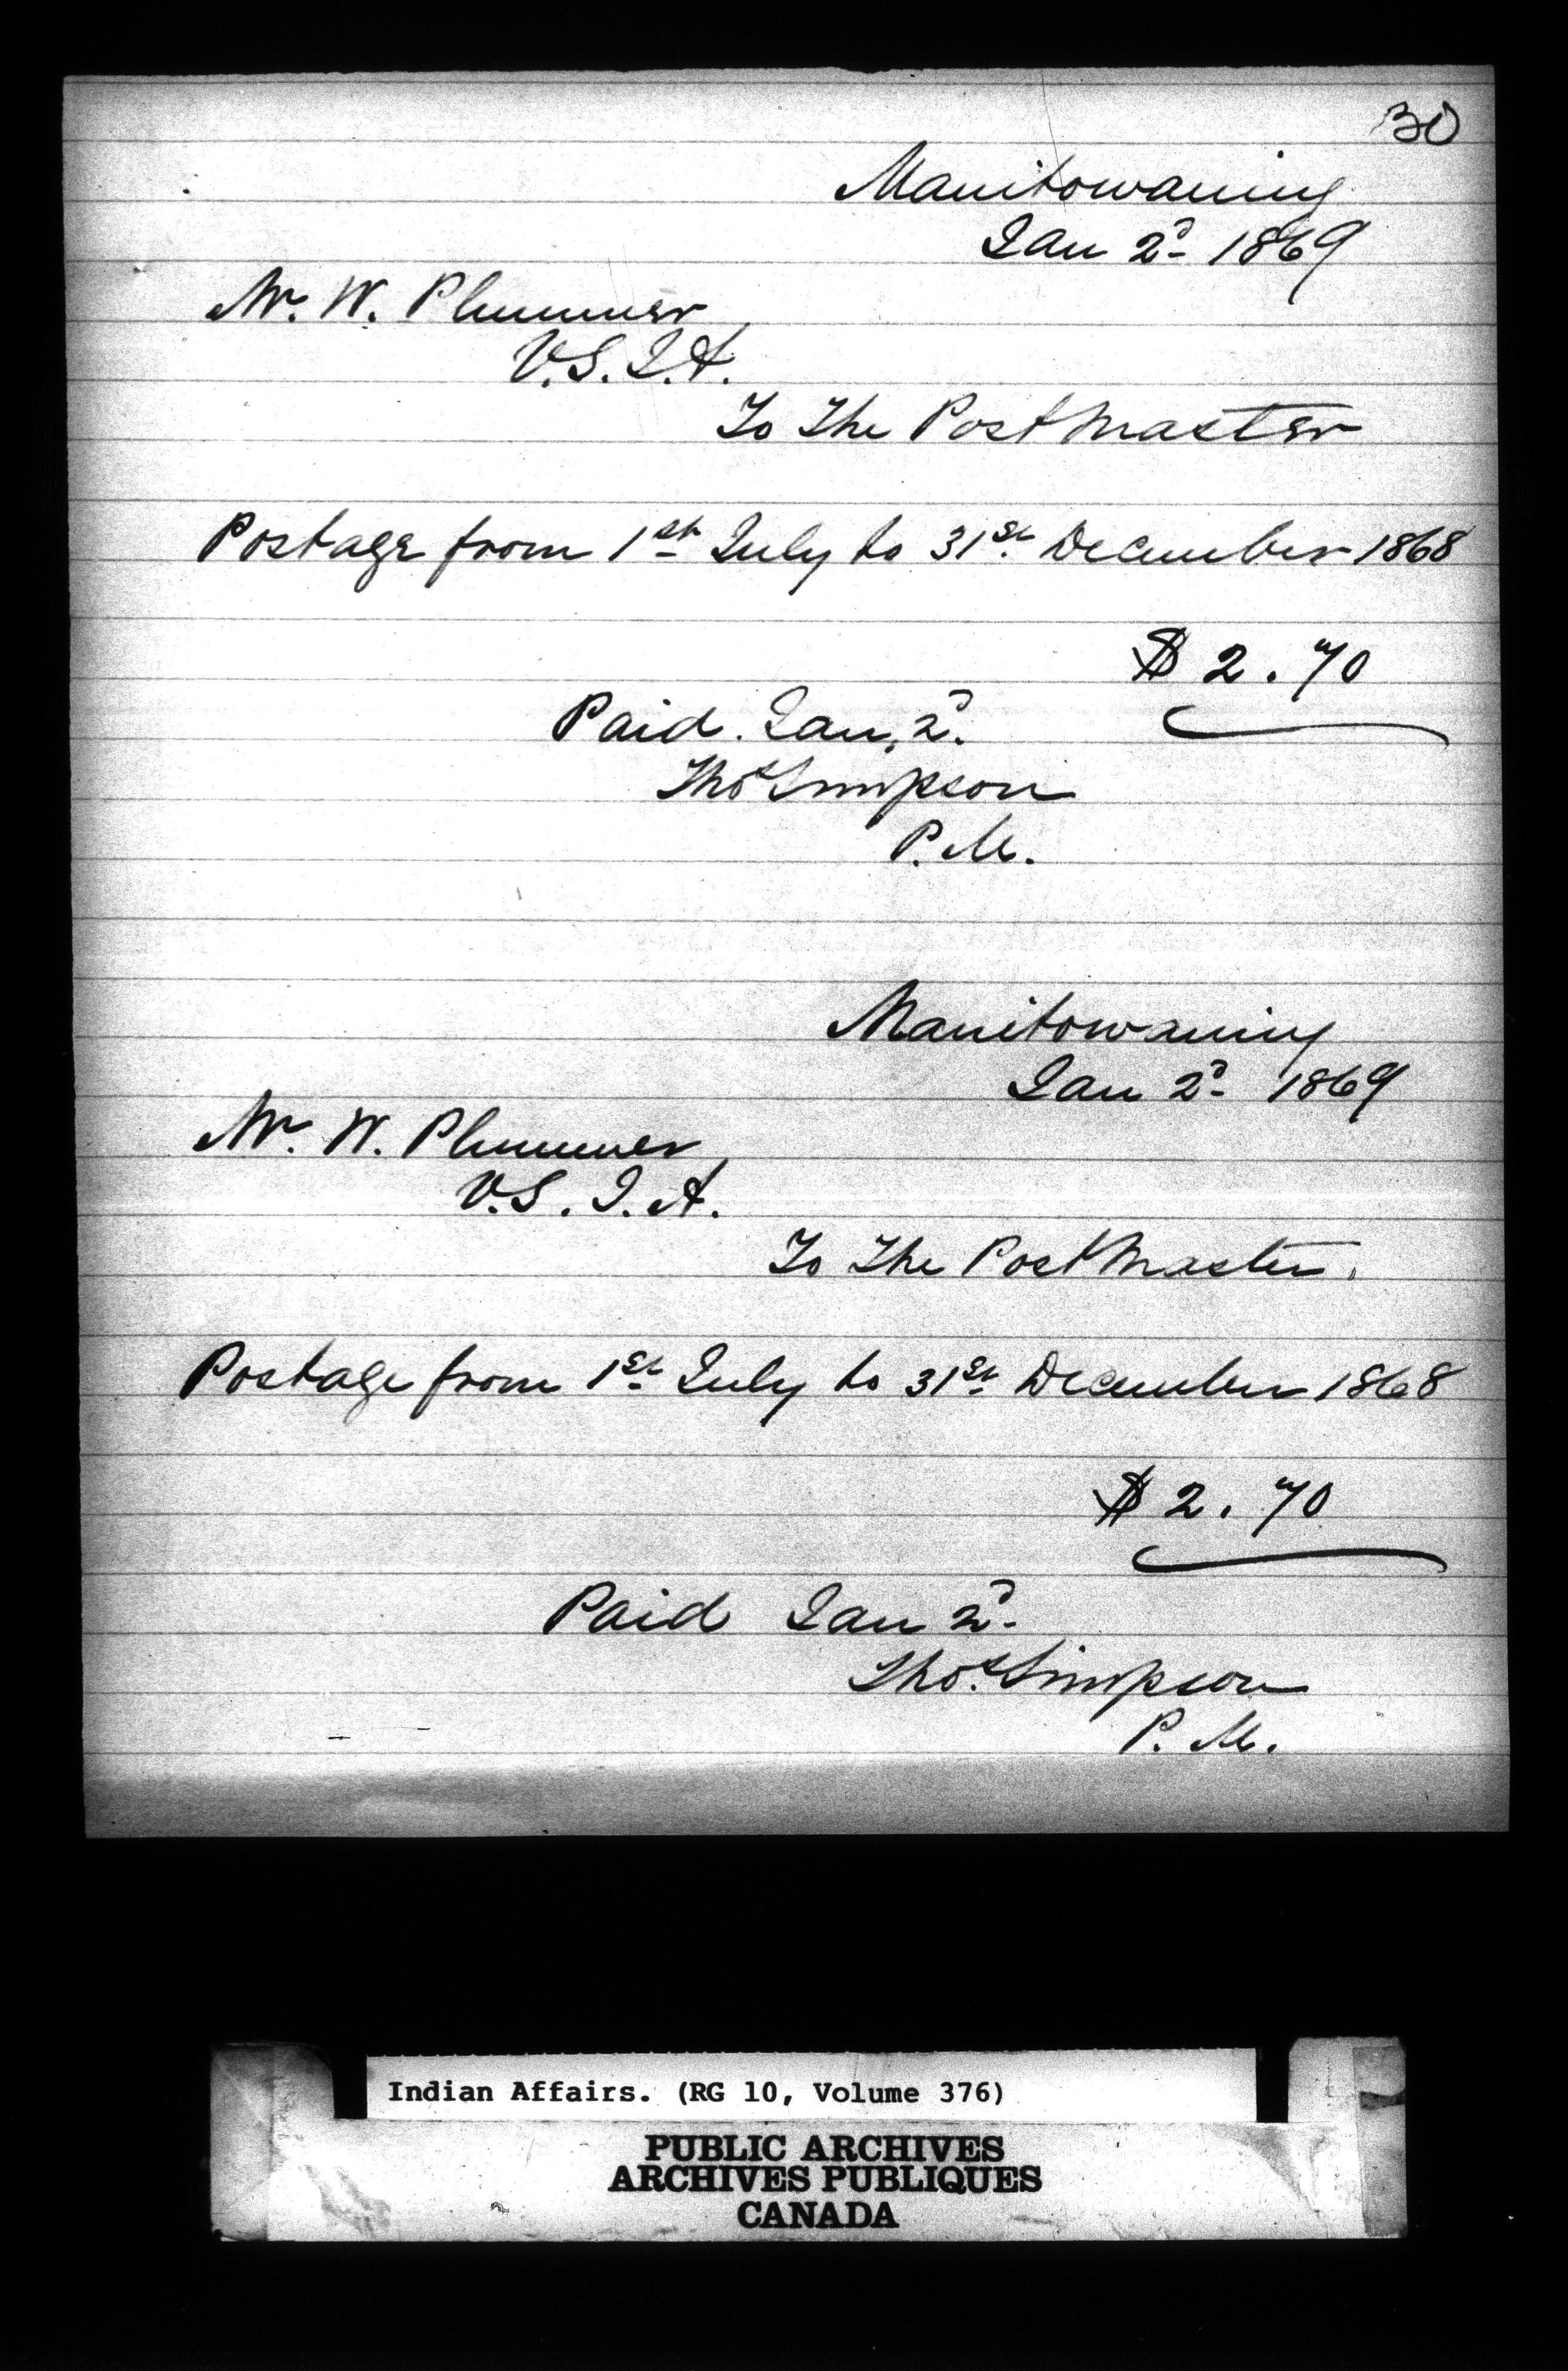 30
Manitowaning
Jan 2d 1869
Mr. W. Plummer
V.S.I.A.
To The Postmaster
Postage from 1st July to 31st December 1868
$ 2.70
Paid. Jan. 2d.
Thos Simpson
P.M.
Manitowaning
Jan 2d 1869
Mr. W. Plummer
V.S.I.A.
To The Postmaster.
Postage from 1st July to 31st December 1868
$ 2.70
Paid Jan 2d.
Thos. Simpson
P.M.
Indian Affairs. (RG 10, Volume 376)
PUBLIC ARCHIVES
ARCHIVES PUBLIQUES
CANADA